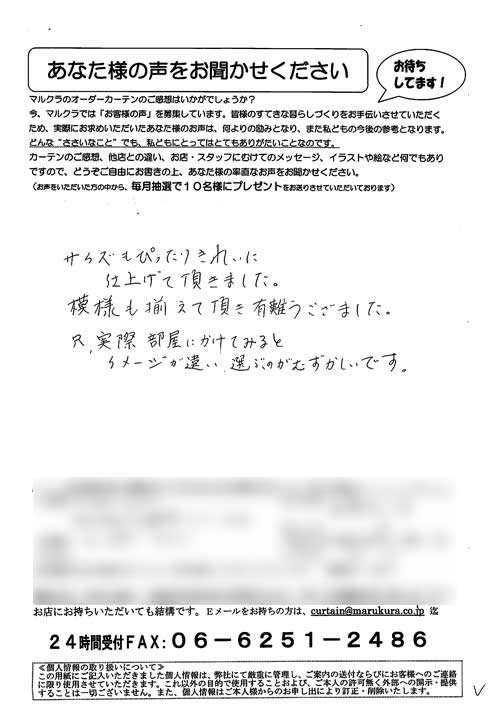 あなた様の声をお聞かせください
お待ち
してます!
マルクラのオーダーカーテンのご感想はいかがでしょうか?
今、マルクラでは「お客様の声」を募集しています。皆様のすてきな暮らしづくりをお手伝いさせていただく
ため、実際にお求めいただいたあなた様のお声は、何よりの励みとなり、また私どもの今後の参考となります。
どんな“ささいなこと”でも、私どもにとってはとてもありがたいことなのです。
カーテンのご感想、他店との違い、お店・スタッフにむけてのメッセージ、イラストや絵など何でもあり
ですので、どうぞご自由にお書きの上、あなた様の率直なお声をお聞かせください。
(お声をいただいた方の中から、毎月抽選で10名様にプレゼントをお送りさせていただいております)
サイズもぴったりきれいに
仕上げて頂きました。
模様も揃えて頂き有難うございました。
只、実際部屋にかけてみると
イメージが違い、選ぶのがむずかしいです。
お店にお持ちいただいても結構です。Eメールをお持ちの方は、curtain@marukura.co.jp 迄
24時間受付FAX:06-6251-2486
≪個人情報の取り扱いについて≫
この用紙にご記入いただきました個人情報は、弊社にて厳重に管理し、ご案内の送付ならびにお客様へのご連絡
に限り使用させていただきます。これ以外の目的で使用することおよび、ご本人の許可無く外部への開示・提供
することは一切ございません。また、個人情報はご本人様からのお申し出により訂正・削除いたします。